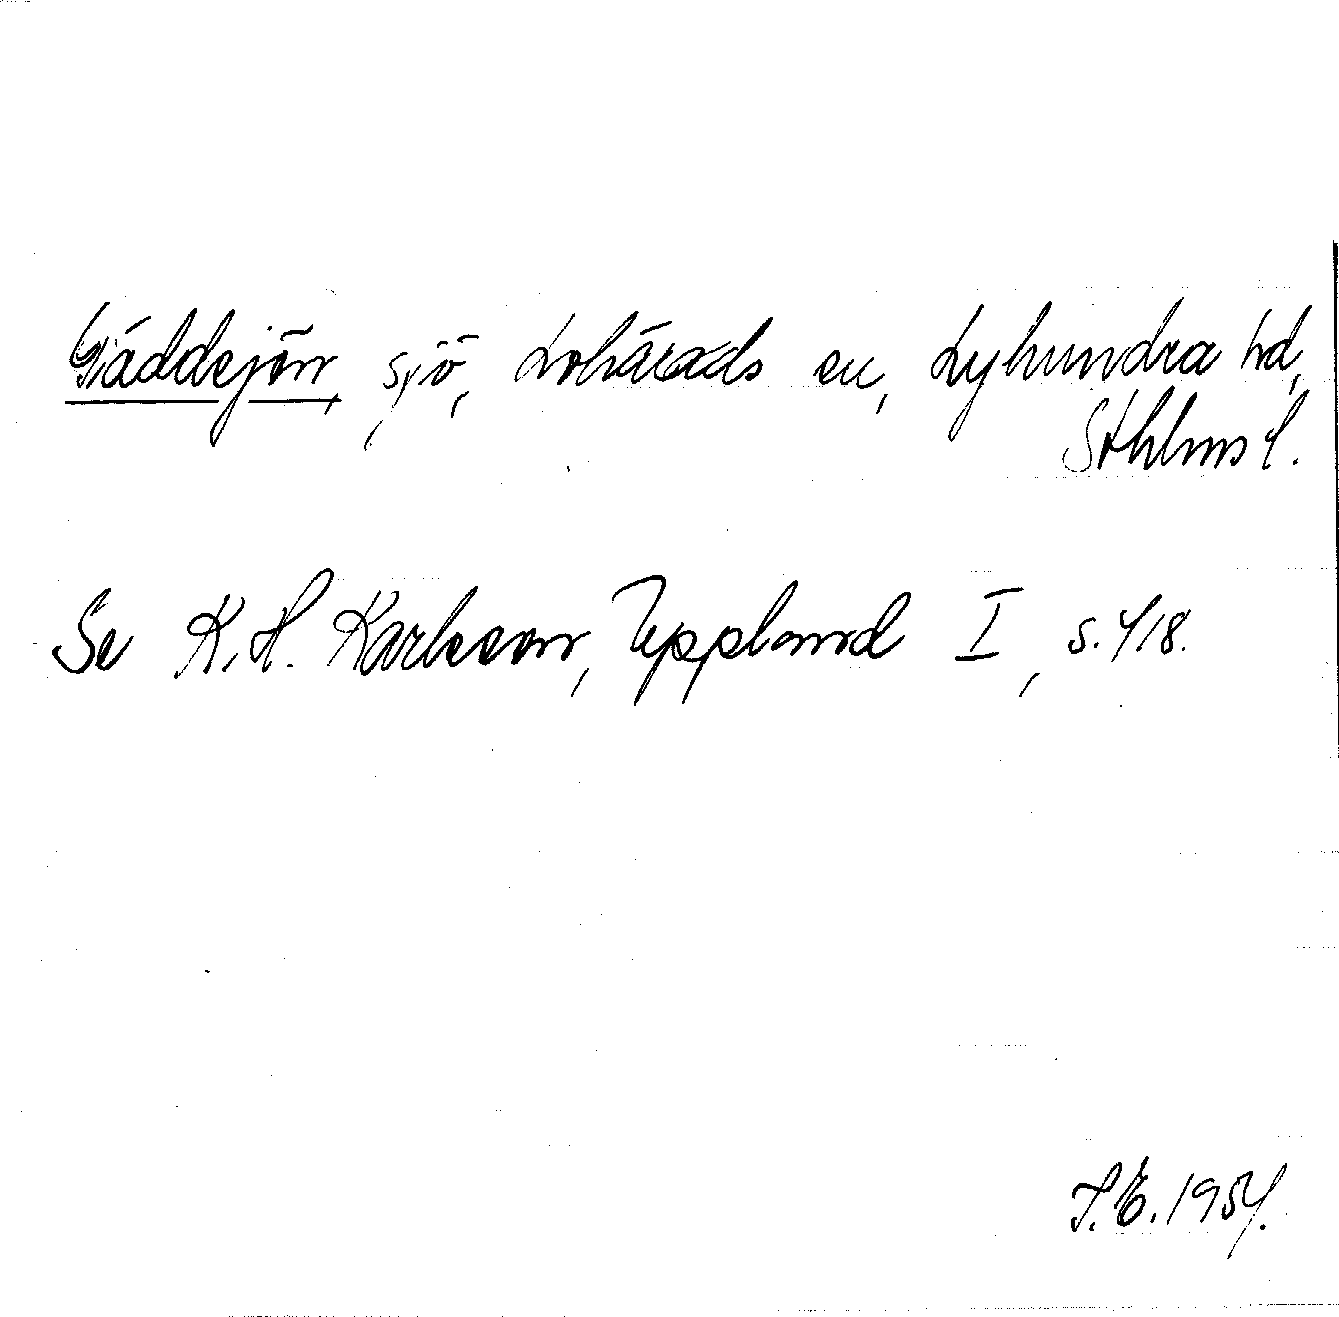 Gäddejön, sjö, Lohärads sn, Lyhundra hd,
Sthlms l.
Se K.H. Karlsson, Uppland I, s. 418.
S.E. 1954.